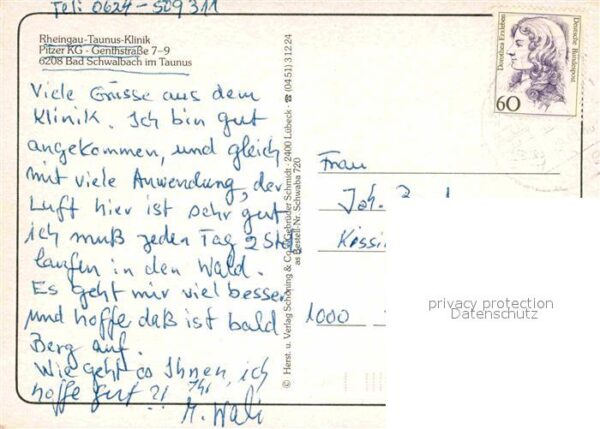 Tel: 0624-509311
Rheingau-Taunus-Klinik
Pitzer KG - Genthstraße 7-9
6208 Bad Schwalbach im Taunus
Viele Grüsse aus dem
Klinik. Ich bin gut
angekommen, und gleich
mit viele Anwendung, der
Luft hier ist sehr gut
ich muß jeden Tag 2 Std.
laufen in den Wald.
Es geht mir viel besser
und hoffe daß ist bald
Berg auf.
Wie geht es Ihnen, ich
hoffe gut
M. Wali
© Herst. u. Verlag Schöning & Co + Gebrüder Schmidt · 2400 Lübeck · ☎ (04 51) 3 12 24
Bestell-Nr. Schwaba 720
Dorothea Erxleben
Deutsche Bundespost
60
Frau
Joh.
1000
privacy protection
Datenschutz